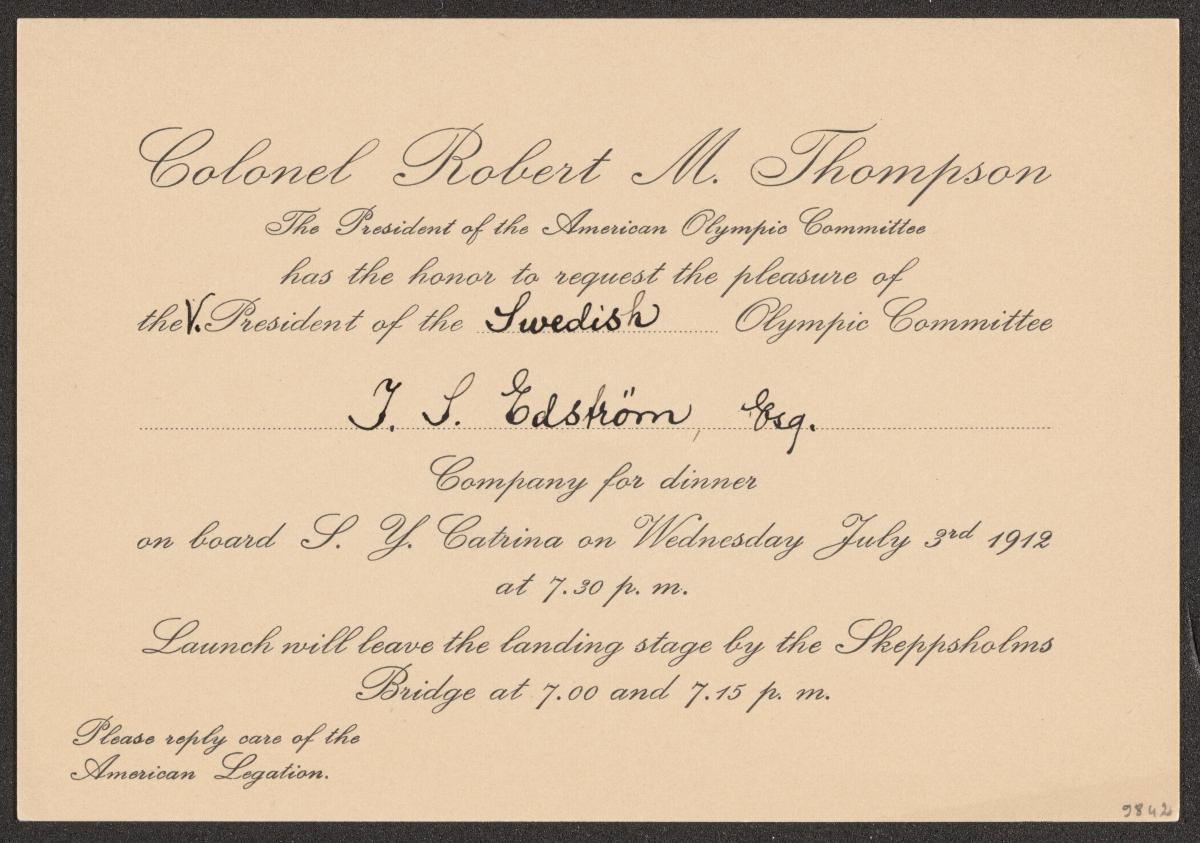 Colonel Robert M. Thompson
The President of the American Olympic Committee
has the honor to request the pleasure of
the V. President of the Swedish Olympic Committee
J. S. Edström, Esq.
Company for dinner
on board S. Y. Catrina on Wednesday July 3rd 1912
at 7.30 p. m.
Launch will leave the landing stage by the Skeppsholms
Bridge at 7.00 and 7.15 p. m.
Please reply care of the
American Legation.
9842